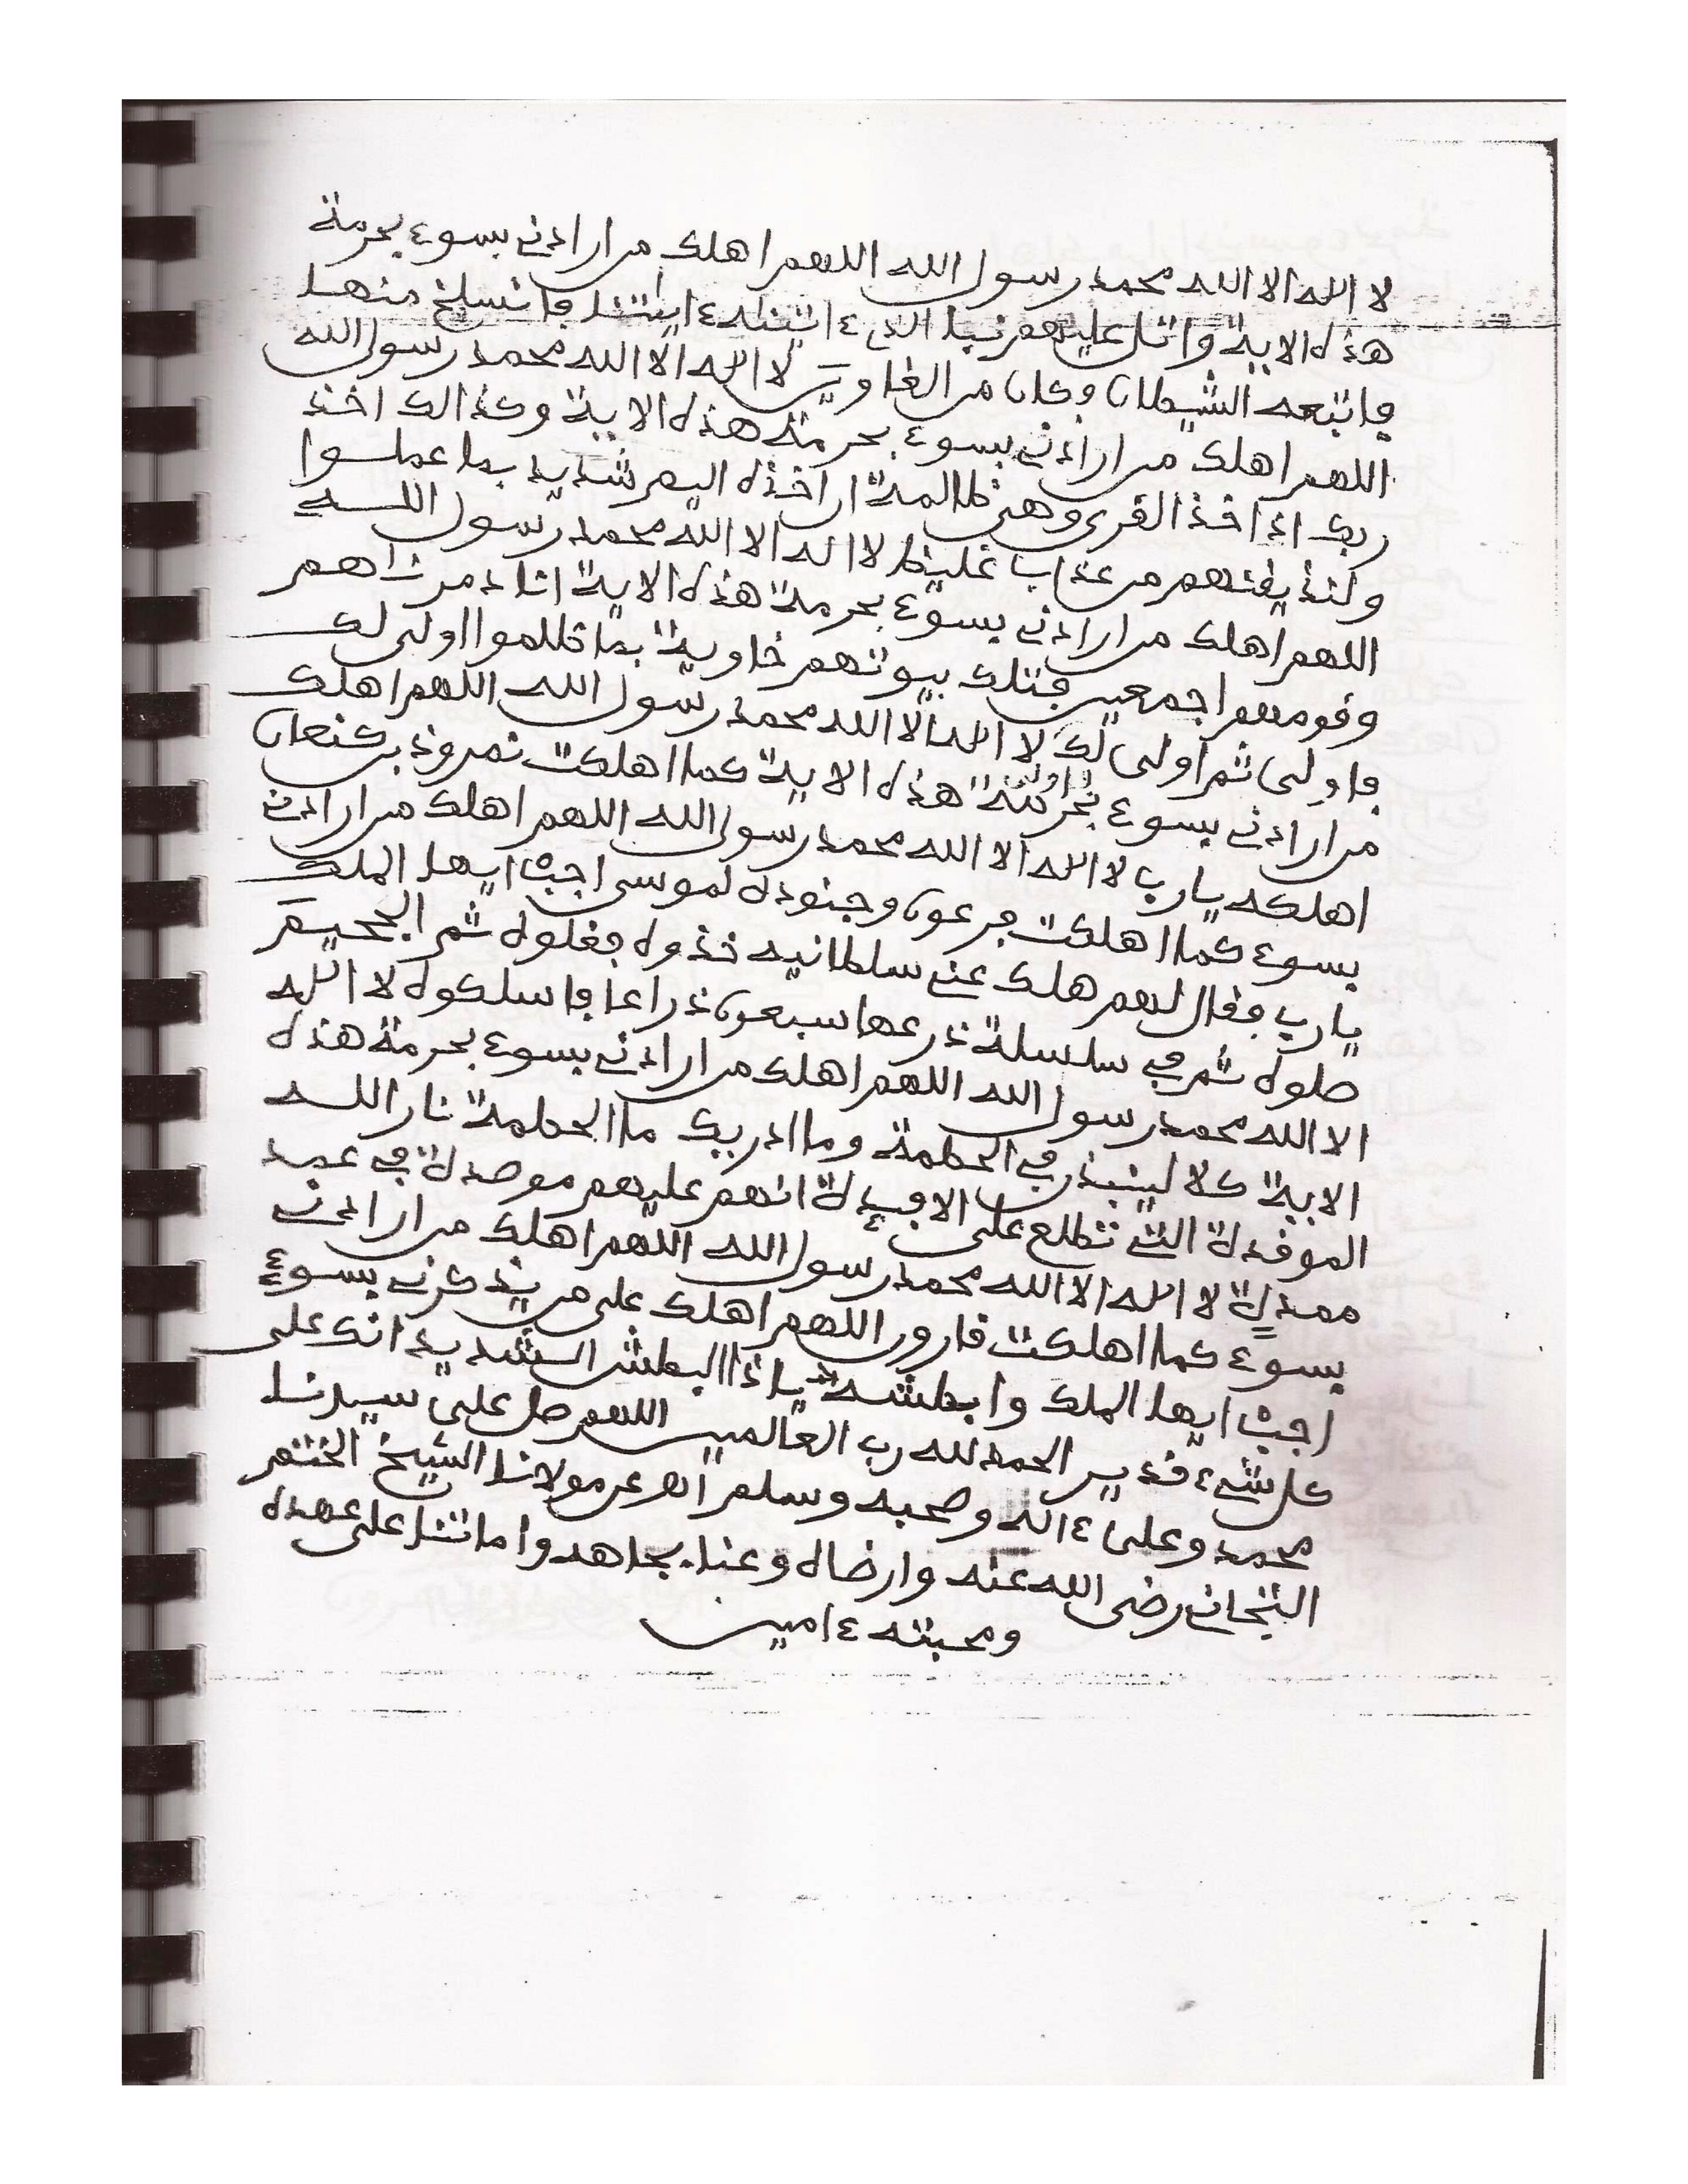 لا اله الا الله محمد رسول الله اللهم اهلك من ارادني بسوء بحرمة
هذه الاية واتل عليهم نبا الذي ءاتينه ءايتنا فانسلخ منها
فاتبعه الشيطان وكان من الغاوين لا اله الا الله محمد رسول الله
اللهم اهلك من ارادني بسوء بحرمة هذه الاية وكذالك اخذ
ربك اذا اخذ القرى وهي ظالمة ان اخذه اليم شديد بما عملوا
ولنذيقنهم من عذاب غليظ لا اله الا الله محمد رسول اللــه
اللهم اهلك من ارادني بسوء بحرمة هذه الاية انا دمرناهم
وقومهم اجمعين فتلك بيوتهم خاوية بما ظلموا اولى لك
فاولى ثم اولى لك لا اله الا الله محمد رسول الله اللهم اهلك
من ارادني بسوء بحرمة هذه الاية كما اهلكت نمروذ بن كنعان
اهلكه يا رب لا اله الا الله محمد رسول الله اللهم اهلك من ارادني
بسوء كما اهلكت فرعون وجنوده لموسى اجب ايها الملك
يا رب فقال لهم هلك عني سلطانيه خذوه فغلوه ثم الجحيم
صلوه ثم في سلسلة ذرعها سبعون ذراعا فاسلكوه لا اله
الا الله محمد رسول الله اللهم اهلك من ارادني بسوء بحرمة هذه
الاية كلا لينبذن في الحطمة وما ادريك ما الحطمة نار اللــه
الموقدة التي تطلع على الافـٕدة انهم عليهم موصدة في عمد
ممددة لا اله الا الله محمد رسول الله اللهم اهلك من ارادني
بسوء كما اهلكت قارون اللهم اهلك على من يذكرني بسوء
اجب ايها الملك وابطشه يا ذا البطش الشديد انك على
كل شيء قدير الحمد لله رب العالمين اللهم صل على سيدنا
محمد وعلى ءاله وصحبه وسلم اهـ عن مولانا الشيخ الختم
التجاني رضى الله عنه وارضاه وعنا بجاهه واماتنا على عهده
ومحبته ءامين